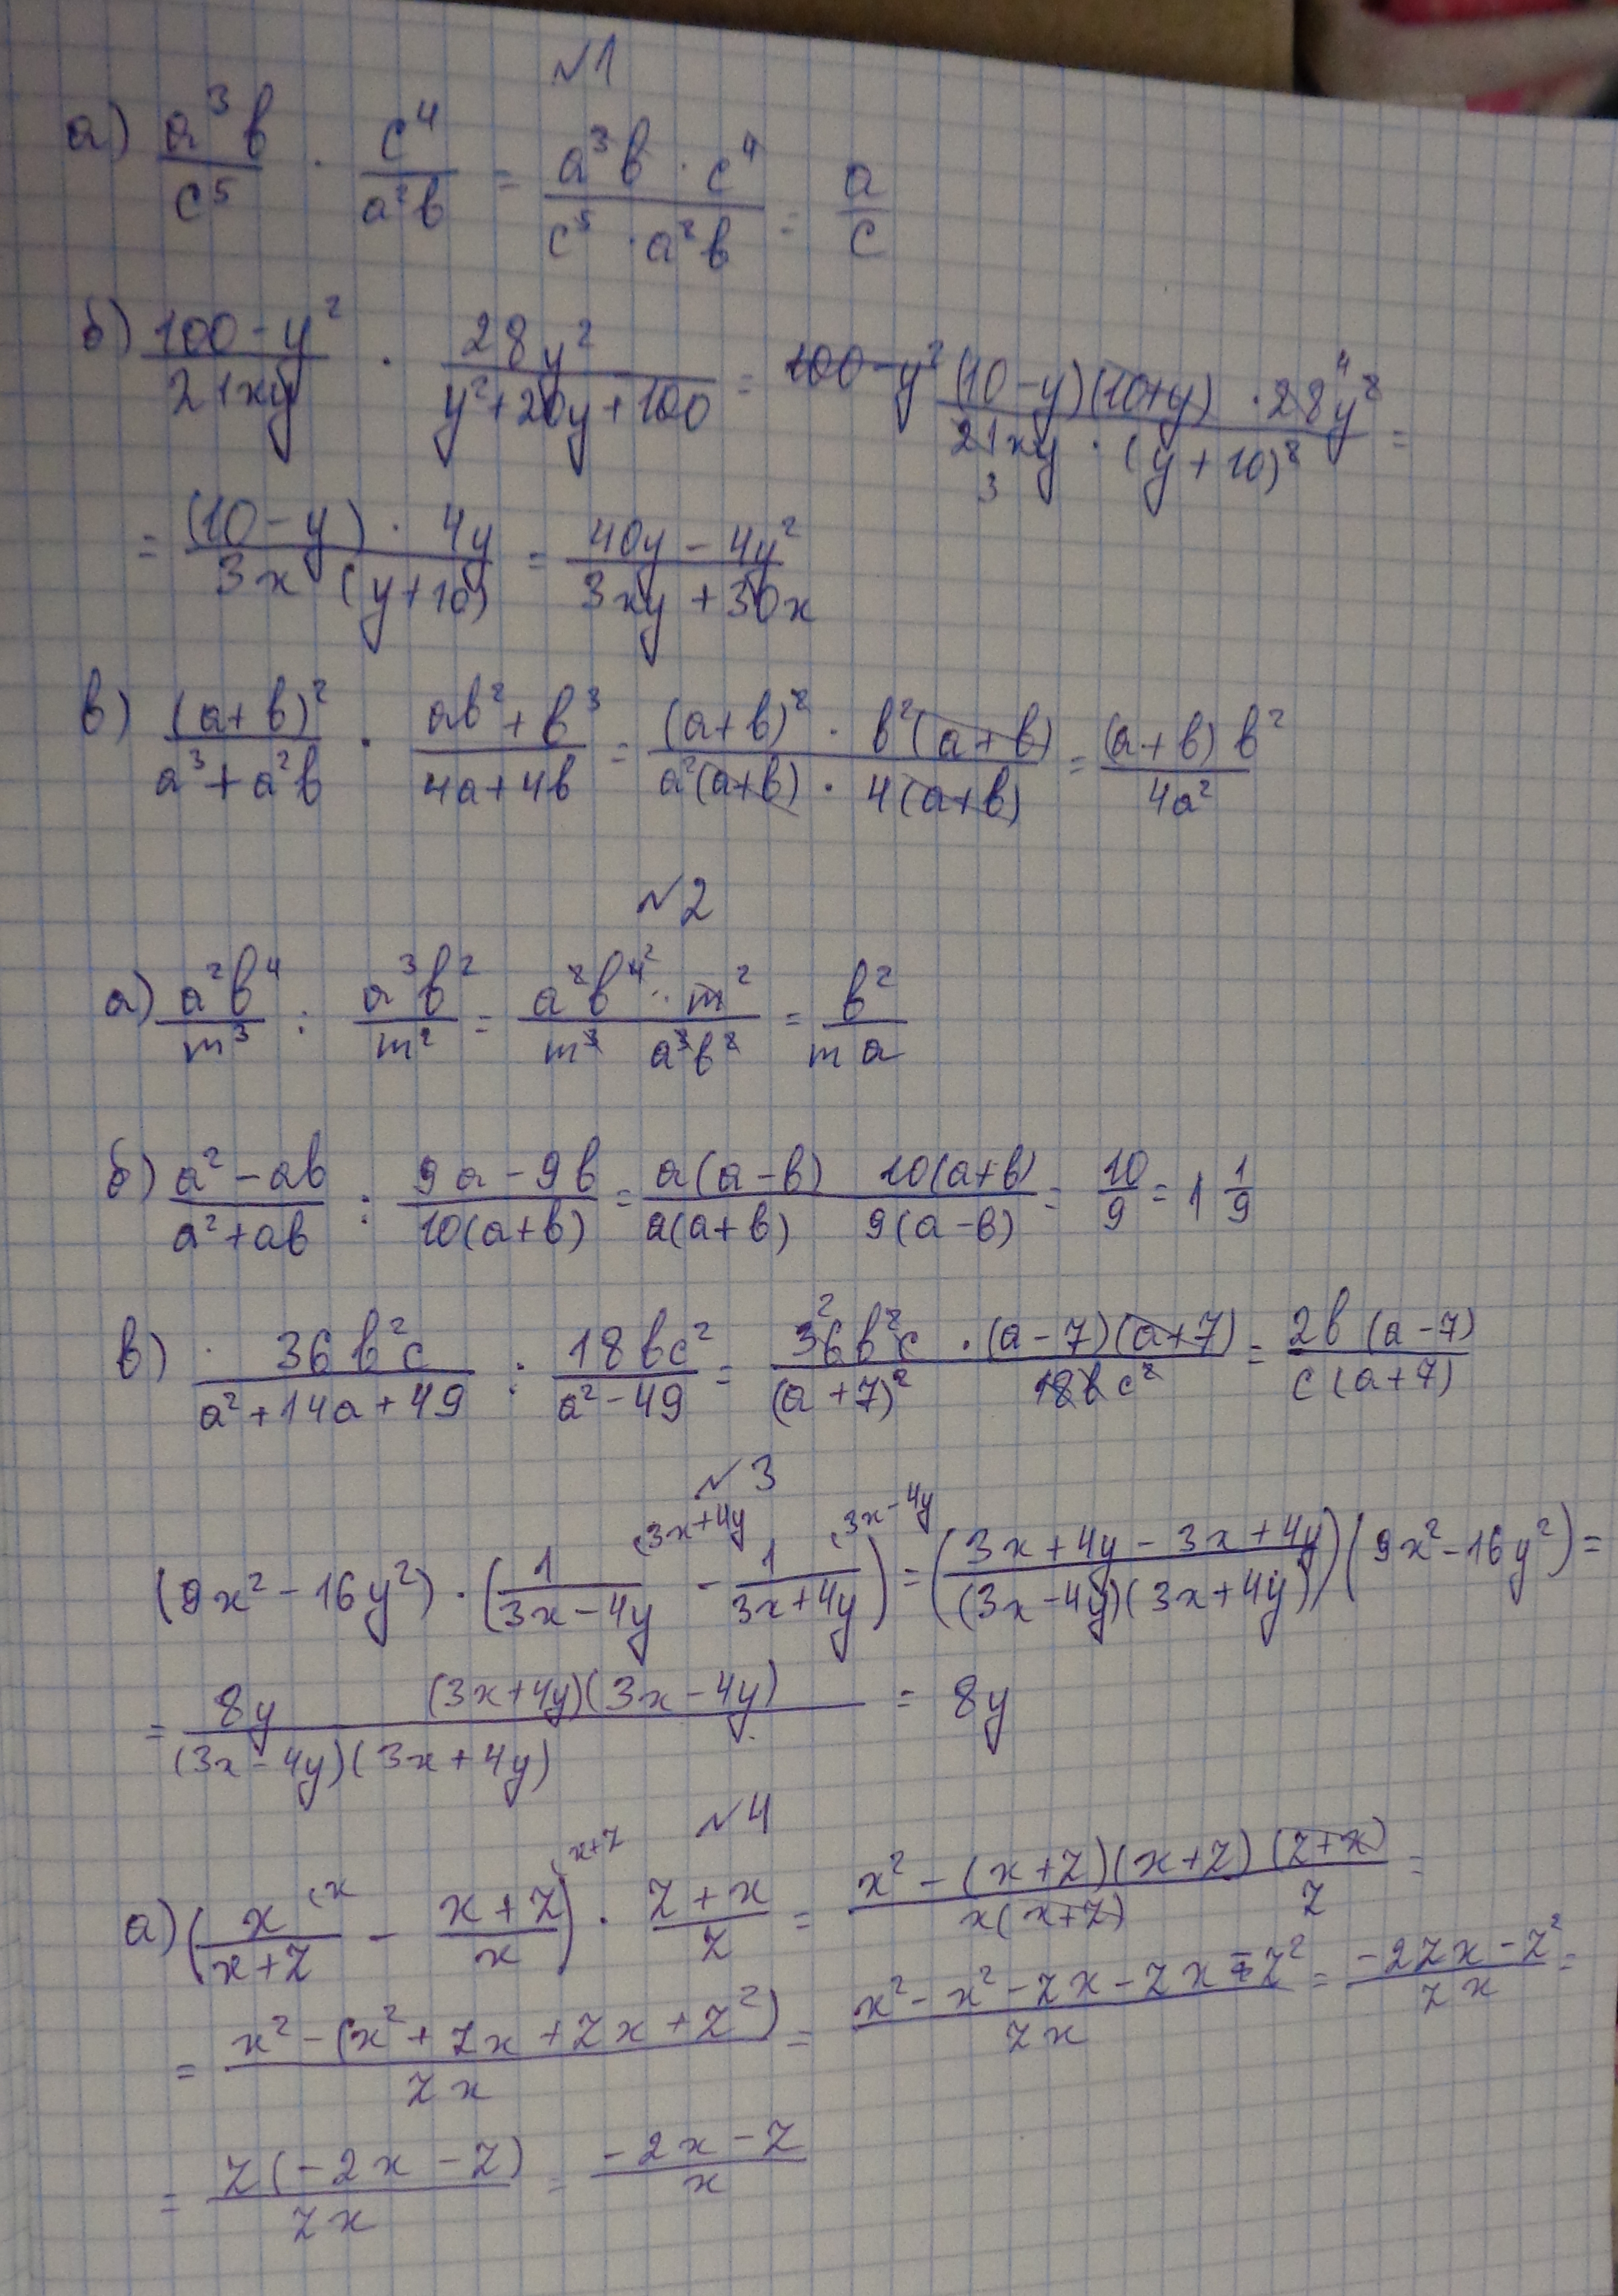 №1
а) a³b/c⁵ · c⁴/a²b = a³b · c⁴/c⁵ · a²b = a/c
б) 100-y²/21xy · 28y²/y²+20y+100 = (10-y)(10+y) · 28y²/21xy · (y+10)² =
= (10-y) · 4y/3x (y+10) = 40y-4y²/3xy+30x
в) (a+b)²/a³+a²b · ab²+b³/4a+4b = (a+b)² · b²(a+b)/a²(a+b) · 4(a+b) = (a+b) b²/4a²
№2
а) a²b⁴/m³ : a³b²/m² = a²b⁴ · m²/m³ a³b² = b²/ma
б) a²-ab/a²+ab : 9a-9b/10(a+b) = a(a-b) 10(a+b)/a(a+b) 9(a-b) = 10/9 = 1 1/9
в) 36b²c/a²+14a+49 : 18bc²/a²-49 = 36b²c · (a-7)(a+7)/(a+7)² 18bc² = 2b (a-7)/c (a+7)
№3
(9x²-16y²) · (1/3x-4y (3x+4y - 1/3x+4y (3x-4y) = (3x+4y-3x+4y/(3x-4y)(3x+4y))(9x²-16y²) =
= 8y (3x+4y)(3x-4y)/(3x-4y)(3x+4y) = 8y
№4
а) (x/x+z (x - x+z/x) (x+z · z+x/z = x²-(x+z)(x+z) (z+x)/x(x+z) z =
= x²-(x²+zx+zx+z²)/zx = x²-x²-zx-zx-z²/zx = -2zx-z²/zx =
= z(-2x-z)/zx = -2x-z/x